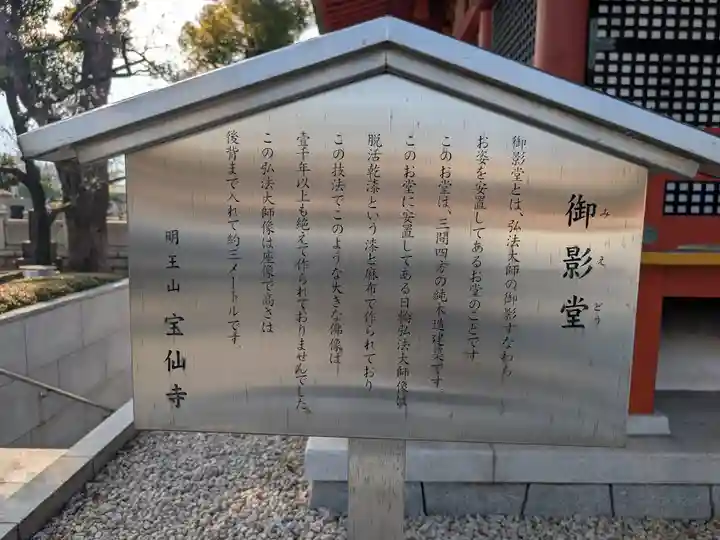 御影堂
みえどう
御影堂とは、弘法大師の御影すなわち
お姿を安置してあるお堂のことです。
このお堂は、三間四方の純木造建築です。
このお堂に安置してある日輪弘法大師像は
脱活乾漆という漆と麻布で作られており
この技法でこのような大きな佛像は
壹千年以上も絶えて作られておりませんでした。
この弘法大師像は座像で高さは
後背まで入れて約三メートルです。
明王山 宝仙寺